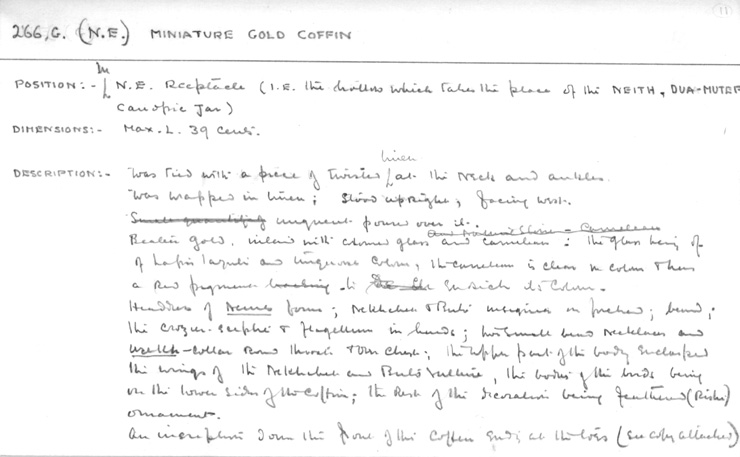 11
266,G. (N.E.) MINIATURE GOLD COFFIN
POSITION:- In N.E. Receptacle (I.E. the hollow which takes the place of the NEITH, DUA-MUTEF
Canopic Jar)
DIMENSIONS:- Max. L. 39 cents.
DESCRIPTION:- Was tied with a piece of twisted linen at the neck and ankles.
Was wrapped in linen; stood upright; facing west.
Small unguent poured over it.
Beaten gold, inlaid with coloured glass and carnelian: the glass being of
of lapis lazuli and turquoise colour, the carnelian is clear in colour & has
a red pigment to enrich its colour.
Headdress of Nemes form; Nekhebet & Buto insignia on forehead; beard;
the crozier-sceptre & flagellum in hands; two small bead necklaces and
-collar round throat & on chest; the upper part of the body enclasped
the wings of the Nekhebet and Buto vulture, the bodies of the birds being
on the lower sides of the coffin; the rest of the decoration being feathered (Rishi)
ornament.
An inscription down the front of the coffin ends at the toes (See copy attached)